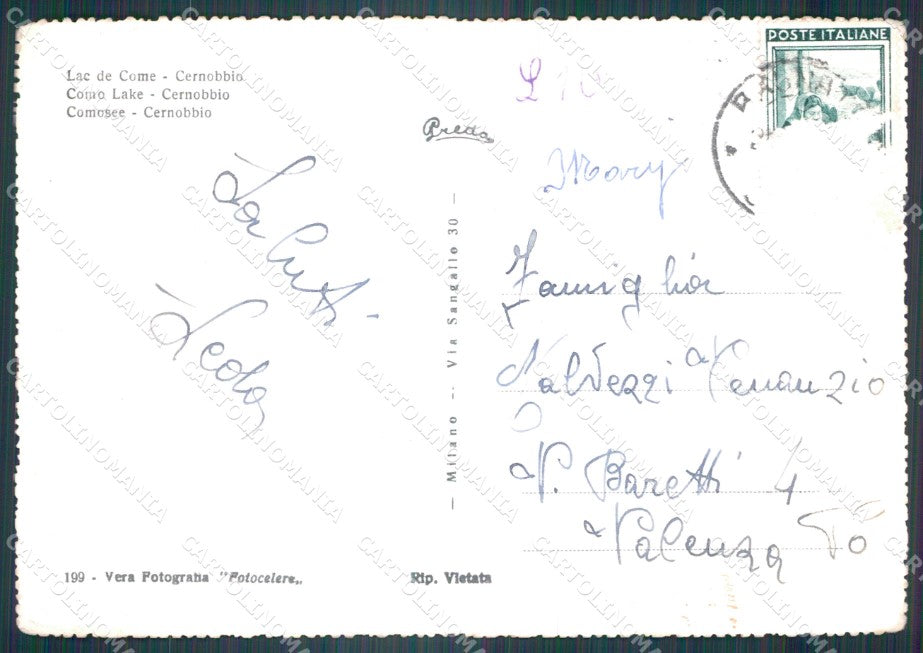 Lac de Come - Cernobbio
Como Lake - Cernobbio
Comosee - Cernobbio
Preda
POSTE ITALIANE
Mary
Saluti
Famiglia
Valenza Po
V. Baretti 4
- Milano -- Via Sangallo 30 -
199 - Vera Fotografia "Fotocelere"
Rip. Vietata
CARTOLINOMANIA